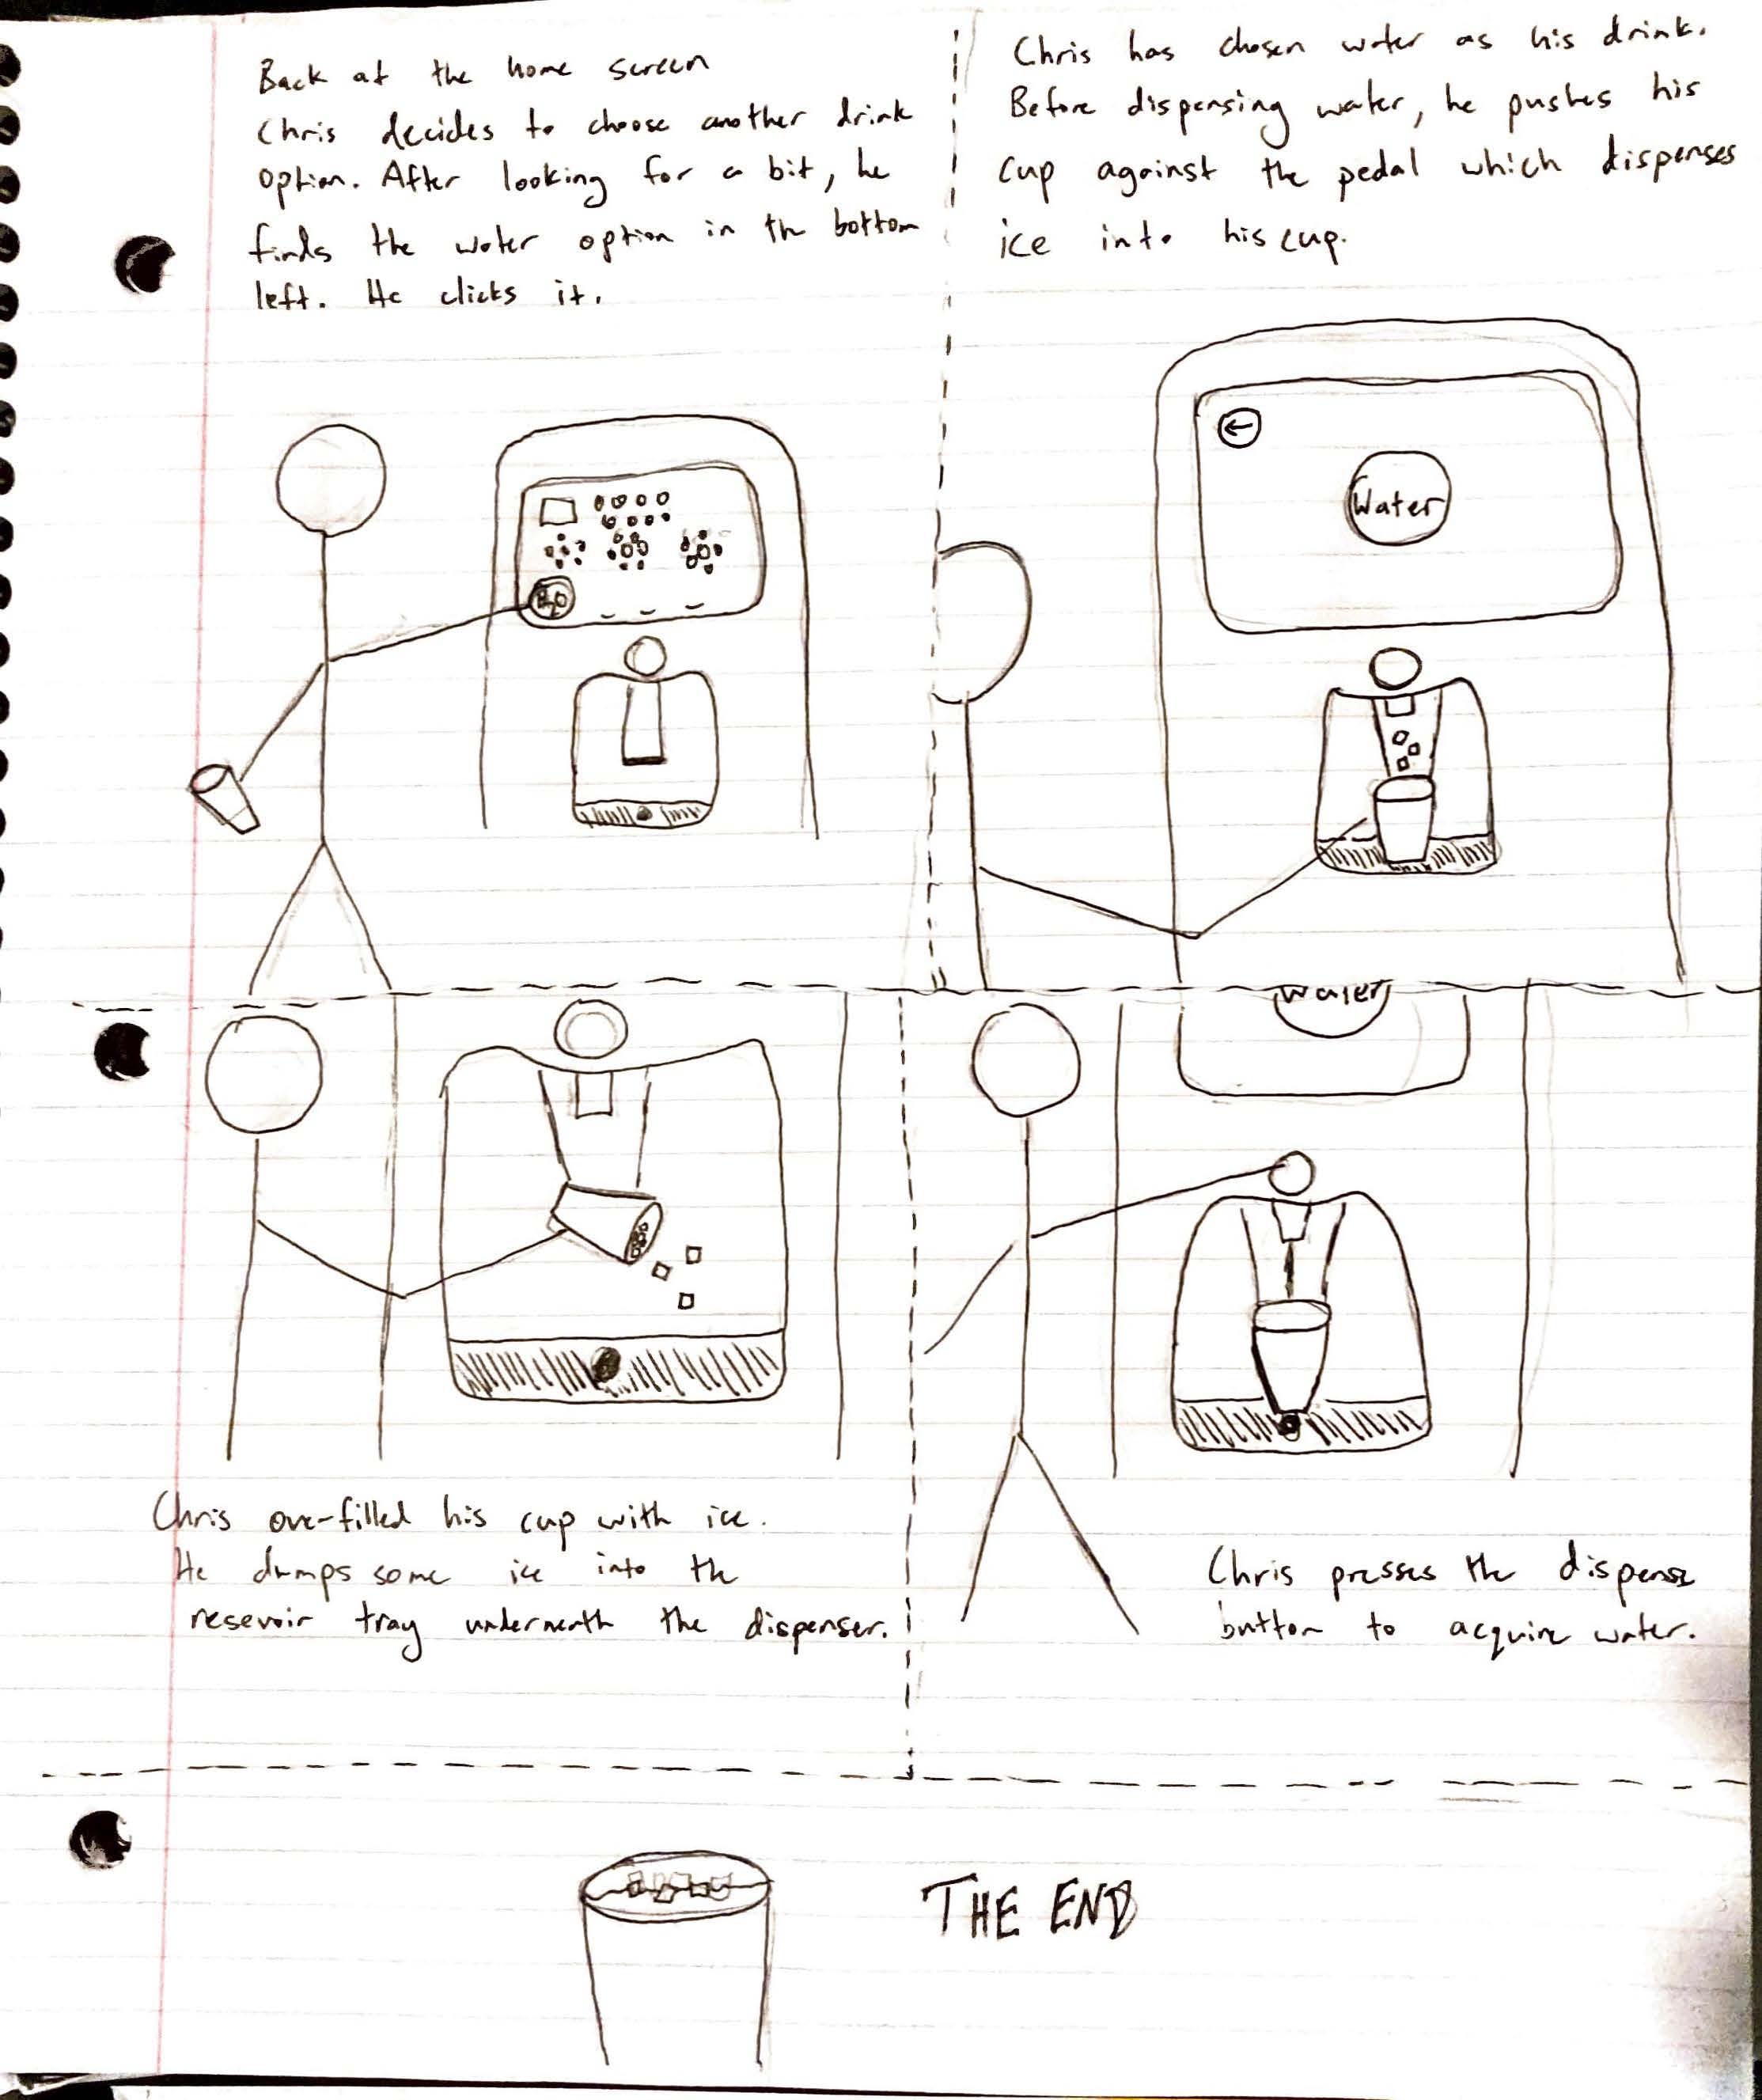 Back at the home screen
Chris decides to choose another drink
option. After looking for a bit, he
finds the water option in the bottom
left. He clicks it.
Chris has chosen water as his drink.
Before dispensing water, he pushes his
cup against the pedal which dispenses
ice into his cup.
H2O
←
Water
Water
Chris over-filled his cup with ice.
He dumps some ice into the
resevoir tray underneath the dispenser.
Chris presses the dispense
button to acquire water.
THE END